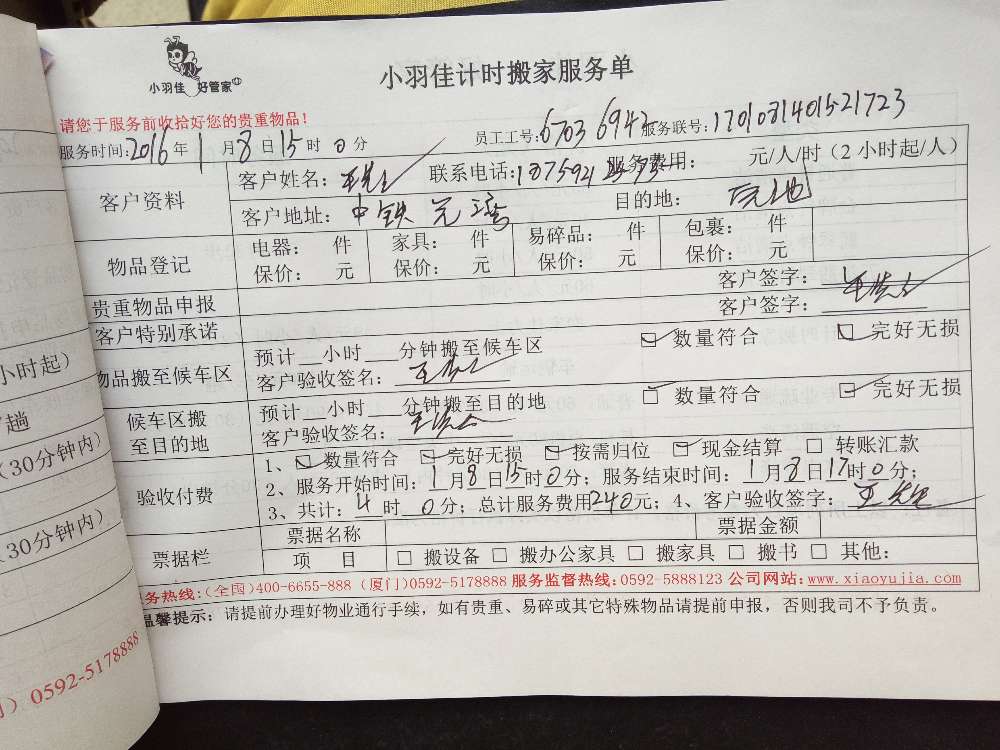 小羽佳 好管家
小羽佳计时搬家服务单
请您于服务前收拾好您的贵重物品！
服务时间：2016年1月8日15时0分 员工工号：6703 6942 服务联号：1701081401521723
客户资料 客户姓名：王先生 联系电话： 服务费用： 元/人/时（2小时起/人）
客户地址：中铁元湾 目的地：
物品登记 电器： 件 家具： 件 易碎品： 件 包裹： 件
保价： 元 保价： 元 保价： 元 保价： 元
贵重物品申报 客户签字：王先生
客户特别承诺 客户签字：
物品搬至候车区 预计 小时 分钟搬至候车区 ☑ 数量符合 ☑ 完好无损
客户验收签名：王先生
候车区搬至目的地 预计 小时 分钟搬至目的地 ☑ 数量符合 ☑ 完好无损
客户验收签名：王先生
验收付费 1、☑ 数量符合 ☑ 完好无损 ☑ 按需归位 ☑ 现金结算 □ 转账汇款
2、服务开始时间：1月8日15时0分；服务结束时间：1月8日17时0分；
3、共计：4时0分；总计服务费用240元；4、客户验收签字：王先生
票据栏 票据名称 票据金额
项 目 □ 搬设备 □ 搬办公家具 □ 搬家具 □ 搬书 □ 其他：
务热线：（全国）400-6655-888（厦门）0592-5178888 服务监督热线：0592-5888123 公司网站：www.xiaoyujia.com
温馨提示：请提前办理好物业通行手续，如有贵重、易碎或其它特殊物品请提前申报，否则我司不予负责。
小时起）
趟
（30分钟内）
（30分钟内）
）0592-5178888